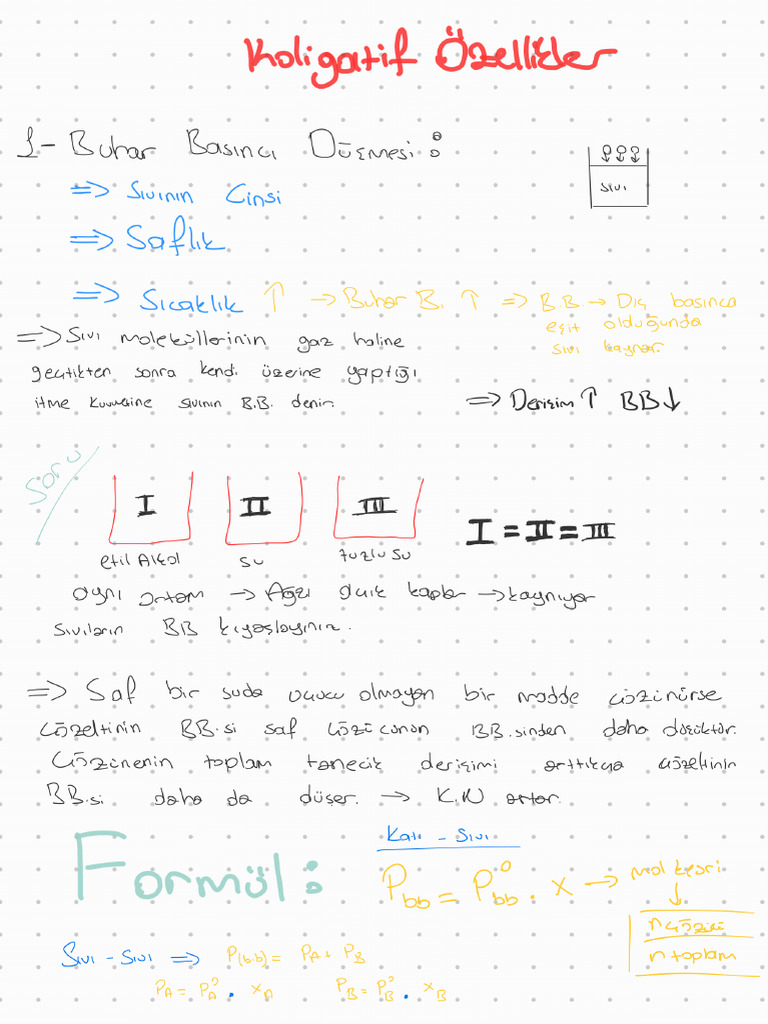 Koligatif Özellikler
1- Buhar Basıncı Düşmesi:
sıvı
=> Sıvının Cinsi
=> Saflık
=> Sıcaklık ↑ → Buhar B. ↑ => B.B. → Dış basınca
eşit olduğunda
sıvı kaynar.
=> Sıvı moleküllerinin gaz haline
geçtikten sonra kendi üzerine yaptığı
itme kuvvetine sıvının B.B. denir.
=> Derişim ↑ BB ↓
Soru
I II III
I = II = III
etil Alkol su tuzlu su
aynı ortam → Ağzı açık kaplar → kaynıyor
sıvıların BB kıyaslayınız.
=> Saf bir suda uçucu olmayan bir madde çözünürse
çözeltinin BB.si saf çözücünün BB.sinden daha düşüktür.
Çözünenin toplam tanecik derişimi arttıkça çözeltinin
BB.si daha da düşer. → K.N artar.
Formül:
Katı - Sıvı
P_bb = P°_bb . x → mol kesri
↓
n çözücü
n toplam
Sıvı - Sıvı => P(b.b) = P_A + P_B
P_A = P_A° . x_A P_B = P_B° . x_B